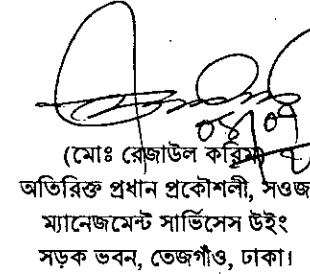 ০৪/০৭
(মোঃ রেজাউল করিম)
অতিরিক্ত প্রধান প্রকৌশলী, সওজ
ম্যানেজমেন্ট সার্ভিসেস উইং
সড়ক ভবন, তেজগাঁও, ঢাকা।